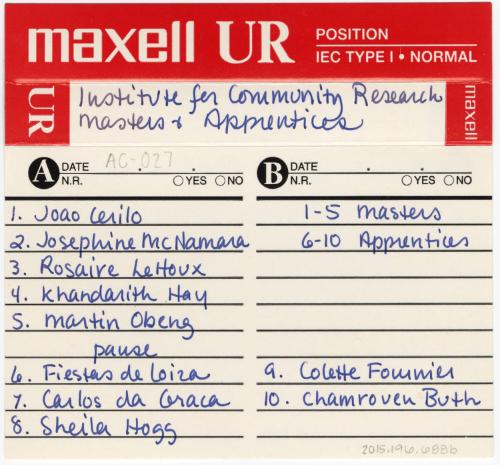 maxell UR POSITION
IEC TYPE I • NORMAL
UR Institute for Community Research maxell
Masters & Apprentices
A DATE AC-027 . .
N.R. YES NO
B DATE . .
N.R. YES NO
1. Joao Cerilo
2. Josephine McNamara
3. Rosaire LeHoux
4. Khandarith Hay
5. Martin Obeng
pause
6. Fiestas de Loiza
7. Carlos da Graca
8. Sheila Hogg
1-5 Masters
6-10 Apprentices
9. Colette Fournier
10. Chamroven Buth
2015.196.688b